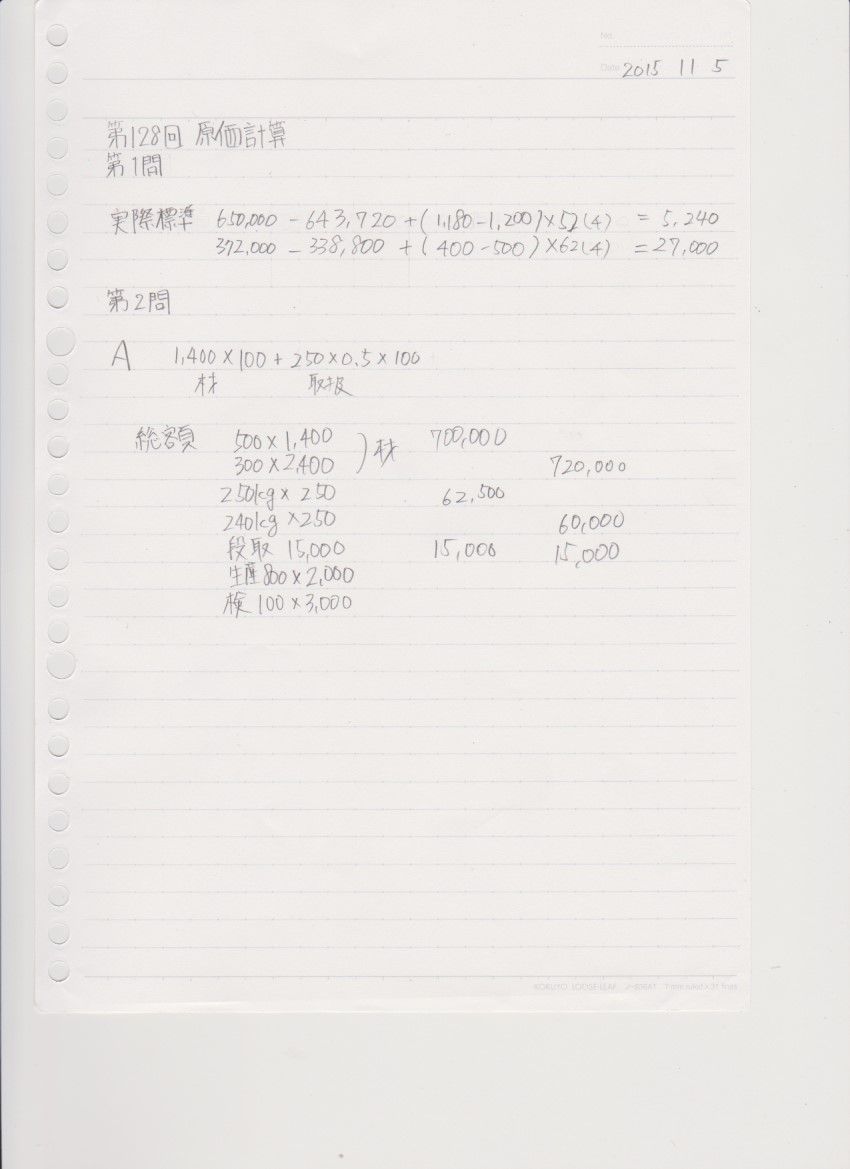 No.
Date 2015 11 5
第128回 原価計算
第1問
実際標準 650,000 - 643,720 + (1,180-1,200)×52(4) = 5,240
372,000 - 338,800 + (400-500)×62(4) = 27,000
第2問
A 1,400×100 + 250×0.5×100
材 取扱
総額 500×1,400 )材 700,000
300×2,400 720,000
250kg×250 62,500
240kg×250 60,000
段取 15,000 15,000 15,000
生産 800×2,000
検 100×3,000
KOKUYO LOOSE-LEAF ノ-836AT 7 mm ruled × 31 lines